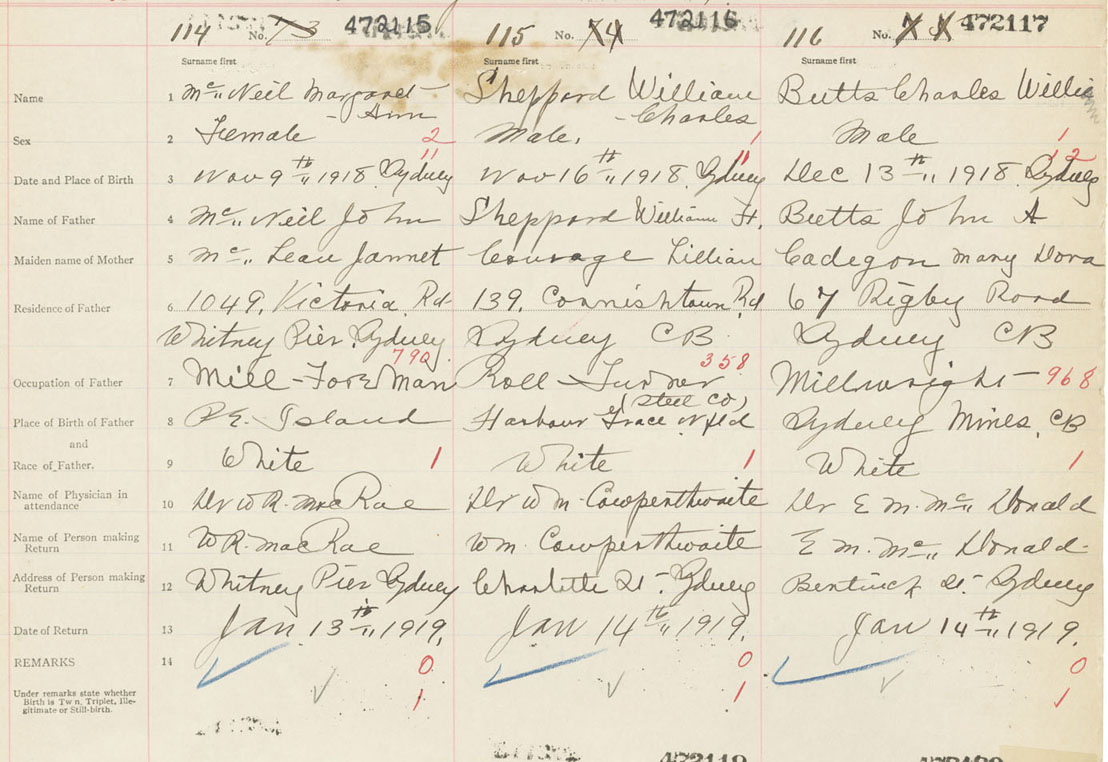 114 No. 73 472115 115 No. 74 472116 116 No. 472117
Surname first Surname first Surname first
Name 1 Mc„ Neil Margaret Sheppard William Butts Charles Willi
- Ann - Charles
Sex 2 Female 2 Male. 1 Male 1
11 11 12
Date and Place of Birth 3 Nov 9th„ 1918. Sydney Nov 16th„ 1918. Sydney Dec 13th„ 1918. Sydney
Name of Father 4 Mc„ Neil John Sheppard William H. Butts John A
Maiden name of Mother 5 Mc„ Lean Jannet Courage Lillian Cadegon Mary Dora
Residence of Father 6 1049. Victoria Rd 139. Cornishtown Rd 67 Rigby Road
Whitney Pier. Sydney Sydney CB Sydney CB
790 358
Occupation of Father 7 Mill-Foreman Roll-Turner Millwright- 968
(Steel Co)
Place of Birth of Father 8 P.E. Island Harbour Grace Nfld Sydney Mines, CB
and
Race of Father. 9 White 1 White 1 White 1
Name of Physician in
attendance 10 Dr W R. MacRae Dr Wm. Cowperthwaite Dr E M. Mc„ Donald
Name of Person making
Return 11 W R. MacRae Wm. Cowperthwaite E M. Mc„ Donald.
Address of Person making
Return 12 Whitney Pier Sydney Charlotte St- Sydney Bentinck St- Sydney
Date of Return 13 Jan 13th„ 1919. Jan 14th„ 1919. Jan 14th„ 1919.
REMARKS 14 0 0 0
1 1 1
Under remarks state whether
Birth is Twn, Triplet, Ille-
gitimate or Still-birth.